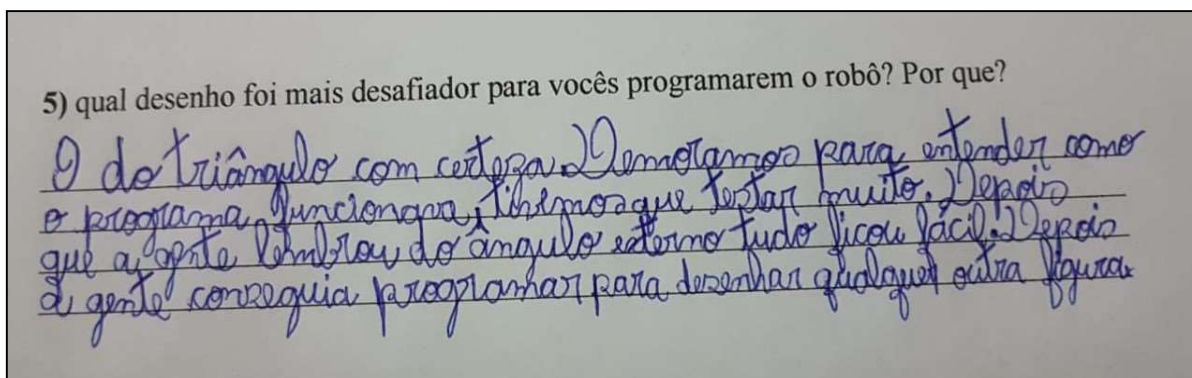 5) qual desenho foi mais desafiador para vocês programarem o robô? Por que?
O do triângulo com certeza. Demoramos para entender como
o programa funcionava, tivemos que testar muito. Depois
que a gente lembrou do ângulo externo tudo ficou fácil. Depois
a gente conseguia programar para desenhar qualquer outra figura